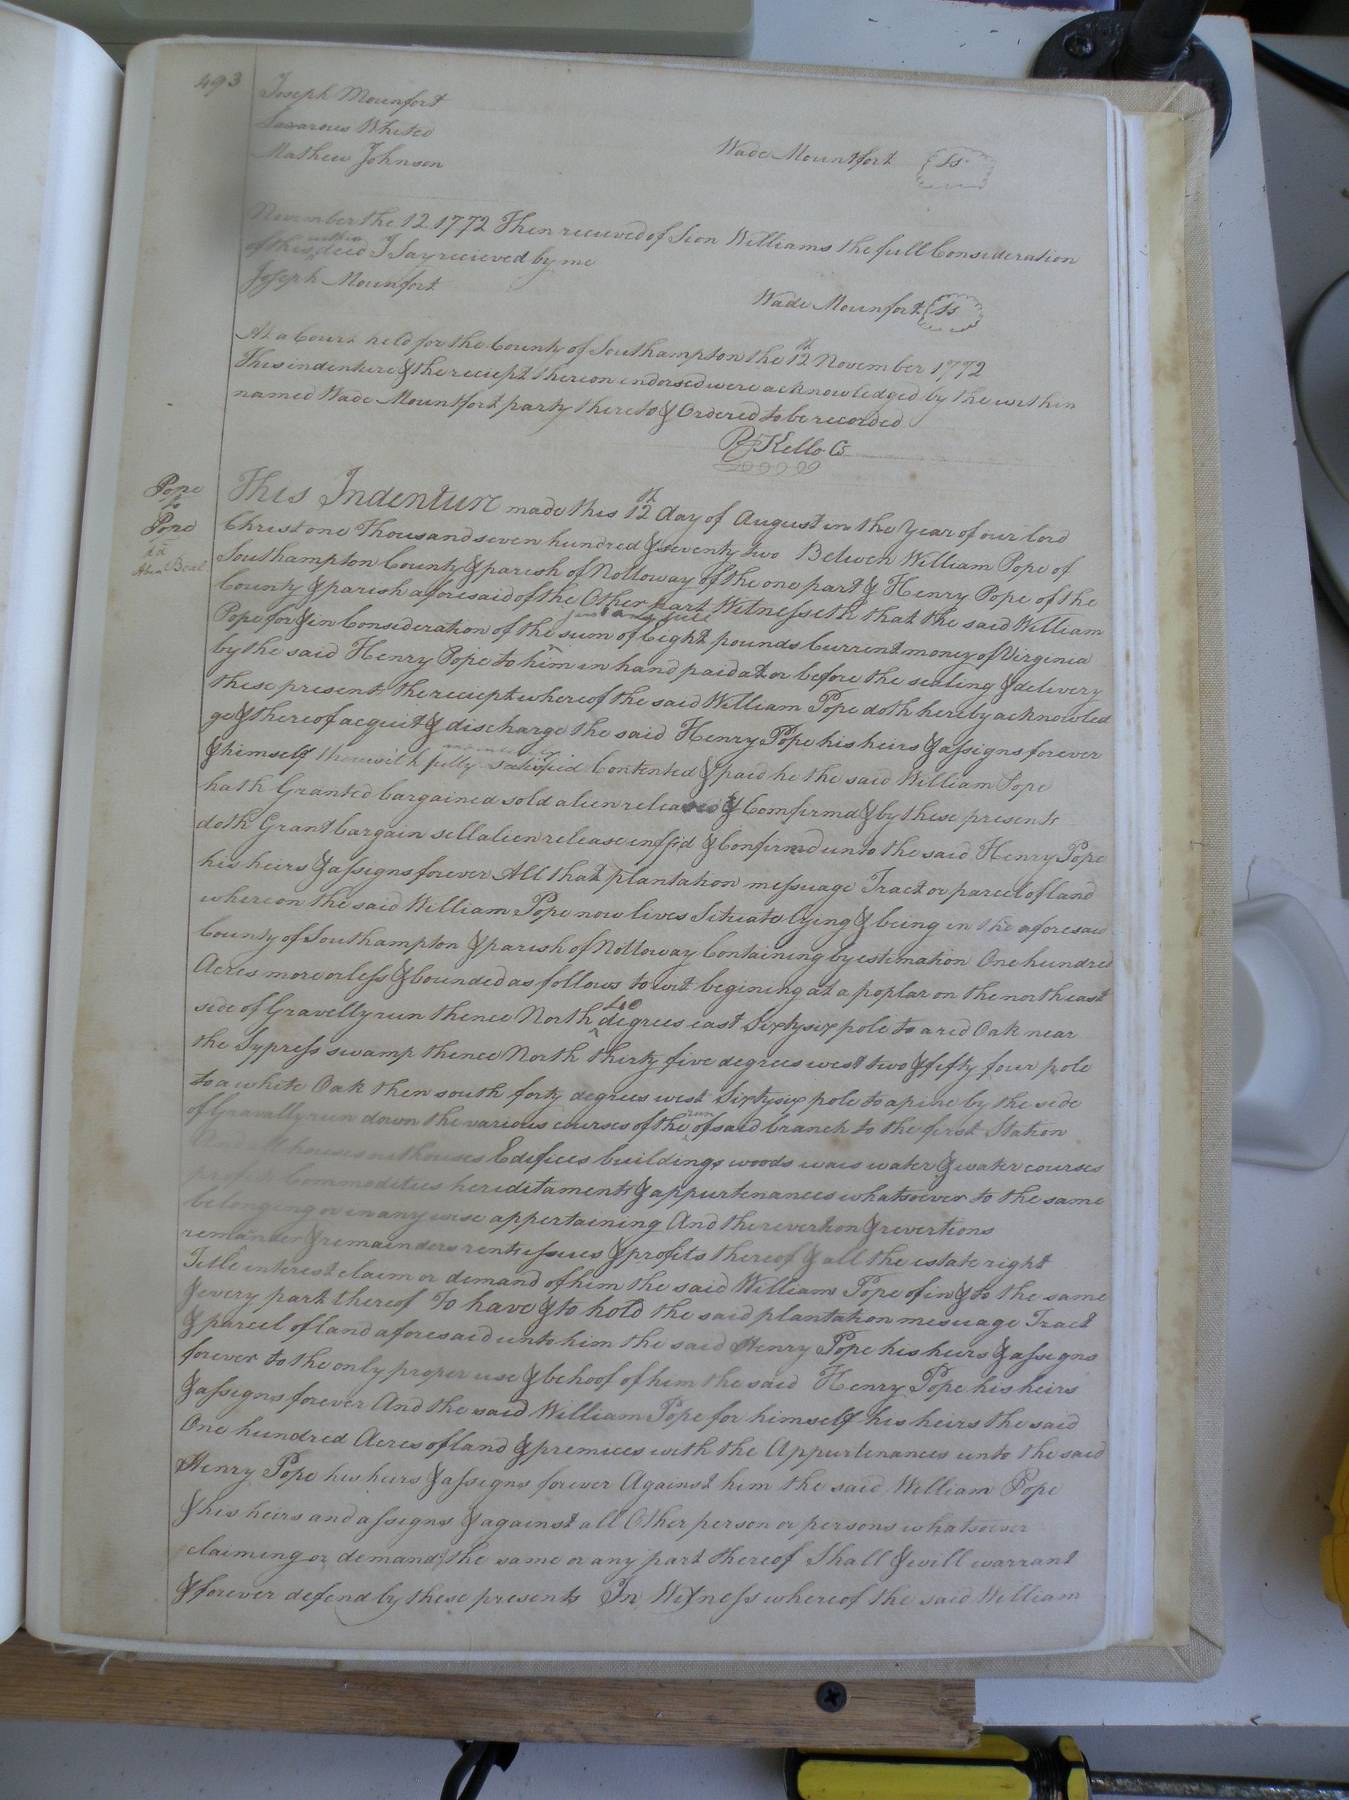 493
Joseph Mounfort
Lazarous Whited
Mathew Johnson
Wade Mountfort Ls
November the 12 1772 Then recieved of Sion Williams the full Consideration
of this within deed I Say recieved by me
Joseph Mounfort
Wade Mounfort Ls
At a Court held for the County of Southampton the 12th November 1772
This indenture & the reciept thereon endorsed were acknowledged by the within
named Wade Mountfort party thereto & Ordered to be recorded
R Kello Cs
Pope
to
Pope
This Indenture made this 12th day of August in the Year of our lord
Christ one Thousand seven hundred & seventy two Between William Pope of
Southampton County & parish of Nottoway of the one part & Henry Pope of the
County & parish aforesaid of the Other part Witnesseth that the said William
Pope for & in Consideration of the sum of Eight pounds Current money of Virginia
by the said Henry Pope to him in hand paid at or before the sealing & delivery
these present the reciept whereof the said William Pope doth hereby acknowled
ge & thereof acquit & discharge the said Henry Pope his heirs & assigns forever
& himself therewith fully satisfied Contented & paid he the said William Pope
hath Granted bargained sold alien released & Comfirmd & by these presents
doth Grant bargain sell alien release enffd & Confirmd unto the said Henry Pope
his heirs & assigns forever All that plantation messuage Tract or parcel of land
whereon the said William Pope now lives Situate lying & being in the aforesaid
County of Southampton & parish of Nottoway Containing by estimation One hundred
Acres more or less & bounded as follows to wit begining at a poplar on the north east
side of Gravelly run thence North 40 degrees east Sixty six pole to a red Oak near
the Sypress swamp thence North thirty five degrees west two & fifty four pole
to a white Oak then south forty degrees west Sixty six pole to a pine by the side
of Gravally run down the various courses of the run of said branch to the first Station
houses outhouses Edifices buildings woods ways water & water courses
profits Commodities hereditaments & appurtenances whatsoever to the same
belonging or in any wise appertaining And the revertion & revertions
remander & remainders rents issues & profits thereof & all the estate right
Title interest claim or demand of him the said William Pope of in & to the same
& every part thereof To have & to hold the said plantation mesuage Tract
& parcel of land aforesaid unto him the said Henry Pope his heirs & assigns
forever to the only proper use & behoof of him the said Henry Pope his heirs
& assigns forever And the said William Pope for himself his heirs the said
One hundred Acres of land & premices with the Appurtenances unto the said
Henry Pope his heirs & assigns forever Against him the said William Pope
& his heirs and assigns & against all Other person or persons whatsoever
claiming or demand the same or any part thereof Shall & will warrant
& forever defend by these presents In Witness whereof the said William